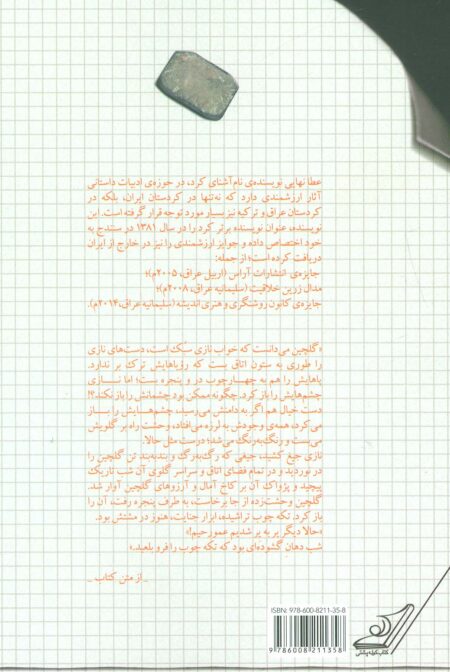 عطا نهایی نویسنده‌ی نام‌آشنای کرد، در حوزه‌ی ادبیات داستانی
آثار ارزشمندی دارد که نه‌تنها در کردستان ایران، بلکه در
کردستان عراق و ترکیه نیز بسیار مورد توجه قرار گرفته است. این
نویسنده، عنوان نویسنده برتر کرد را در سال ۱۳۸۱ در سنندج به
خود اختصاص داده و جوایز ارزشمندی را نیز در خارج از ایران
دریافت کرده است؛ از جمله:
جایزه‌ی انتشارات آراس (اربیل عراق، ۲۰۰۵م)؛
مدال زرین خلاقیت (سلیمانیه عراق، ۲۰۰۸م)؛
جایزه‌ی کانون روشنگری و هنری اندیشه (سلیمانیه عراق، ۲۰۱۴م).
«گلچین می‌دانست که خواب نازی سبک است، دست‌های نازی
را طوری به ستون اتاق بست که رؤیاهایش ترک بر ندارد.
پاهایش را هم به چهارچوب در و پنجره بست؛ اما نازی
چشم‌هایش را باز کرد. چگونه ممکن بود چشمانش را باز نکند؟!
دست خیال هم اگر به دامنش می‌رسید، چشم‌هایش را باز
می‌کرد، همه‌ی وجودش به لرزه می‌افتاد، وحشت راه بر گلویش
می‌بست و رنگ‌به‌رنگ می‌شد؛ درست مثل حالا.
نازی جیغ کشید، جیغی که رگ‌به‌رگ و بندبه‌بند تن گلچین را
در نوردید و در تمام فضای اتاق و سراسر گلوی آن شب تاریک
پیچید و پژواک آن بر کاخ آمال و آرزوهای گلچین آوار شد.
گلچین وحشت‌زده از جا برخاست، به طرف پنجره رفت، آن را
باز کرد. تکه چوب تراشیده، ابزار جنایت، هنوز در مشتش بود.
«حالا دیگر یر به یر شدیم عمورحیم!»
شب دهان گشوده‌ای بود که تکه چوب را فرو بلعید.»
_ از متن کتاب _
ISBN: 978-600-8211-35-8
9 786008 211358
کتاب کوله‌پشتی